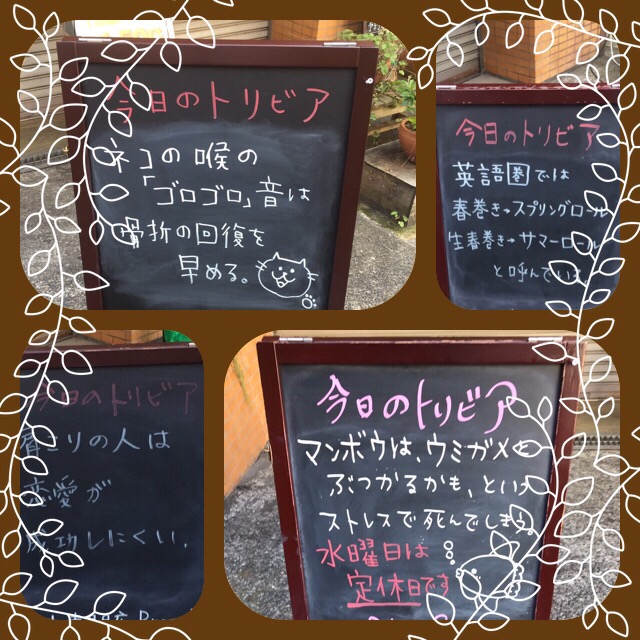 今日のトリビア
ネコの喉の
「ゴロゴロ」音は
骨折の回復を
早める。
今日のトリビア
英語圏では
春巻き→スプリングロール
生春巻き→サマーロール
と呼んでいる
今日のトリビア
肩こりの人は
恋愛が
成功しにくい。
今日のトリビア
マンボウは、ウミガメに
ぶつかるかも、という
ストレスで死んでしまう。
水曜日は
定休日です